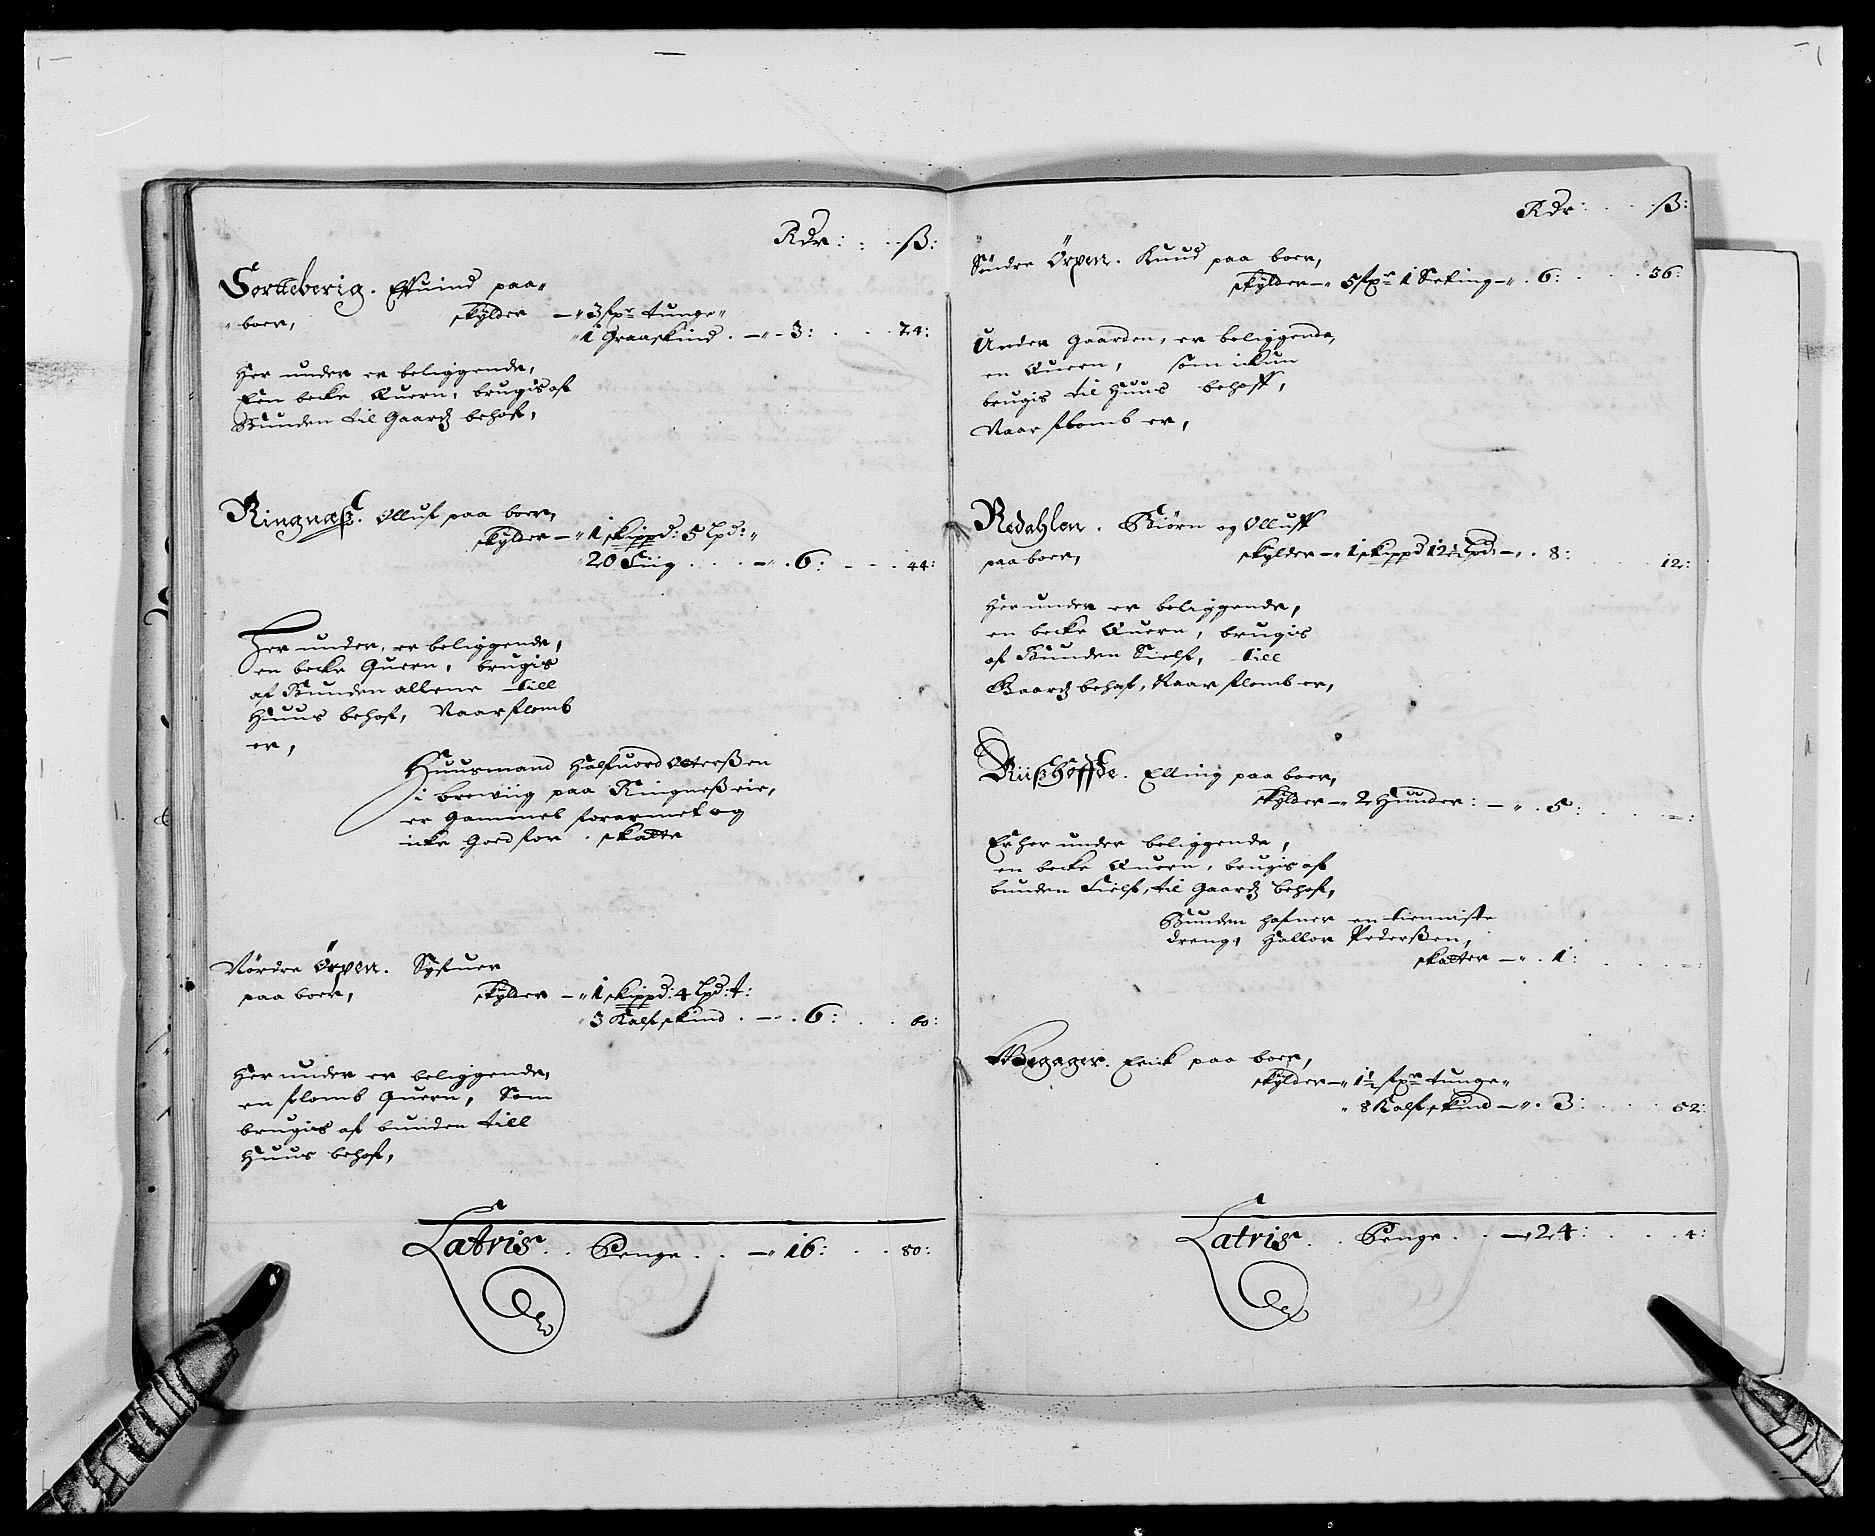 Rdr: : . . ß:
Sorteberig. Effuind paa
boer, skylder — 3 sxr tunge
1 Graaskind . — 3: . . . 24:
Her under er beliggende,
Een becke Quern, brugis af
Bunden til Gaardz behof,
Ringnæß. Olluf paa boer,
skylder — 1 skippd: 5 lpd:
20 Siig . . . — . 6: . . . 44:
Her under, er beliggende,
en becke Quern, brugis
af Bunden allene till
Huus behof, Naar flomb
er,
Huusmand Halfuord Otterßen
i brewiig paa Ringneß eie,
er Gammel forarmet og
icke Goed for . skatte
Nørdre Ørpen. Syfuer
paa boer, skylder — 1 skippd. 4 lpd: t:
3 Kalfskind . — . 6: . . . 60:
Her under er beliggende,
en flomb Quern, Som
brugis af bunden till
Huus behof,
Latris . . Penge . . — 16: . . . 80:
Rdr: . . . ß:
Søndre Ørpen. Knud paa boer,
skylder — 5 sxr 1 Setting — . 6: . . . 56:
Under Gaarden, er beliggende,
en Quern, som ickun
brugis til Huus behoff,
Naar flomb er,
Redahlen. Biørn og Olluff
paa boer, skylder — 1 skippd 12½ lpd: — . 8: . . . 12:
Her under er beliggende,
en becke Quern, brugis
af Bunden Sielf, till
Gaardz behof, Naar flomb er,
Riißhøffde. Elling paa boer,
skylder — 2 Huuder: — . 5: . . . — :
Er her under beliggende,
en becke Quern, brugis af
bunden Sielf, til Gaardz behof,
Bunden hafuer en tienniste
dreng, Hallor Pederßen,
skatter — . 1: . . . — :
Wegager. Erick paa boer,
skylder — 1½ sxr tunge
8 Kalfskind — . 3: . . . 52:
Latris . . Penge . . — 24: . . . 4: